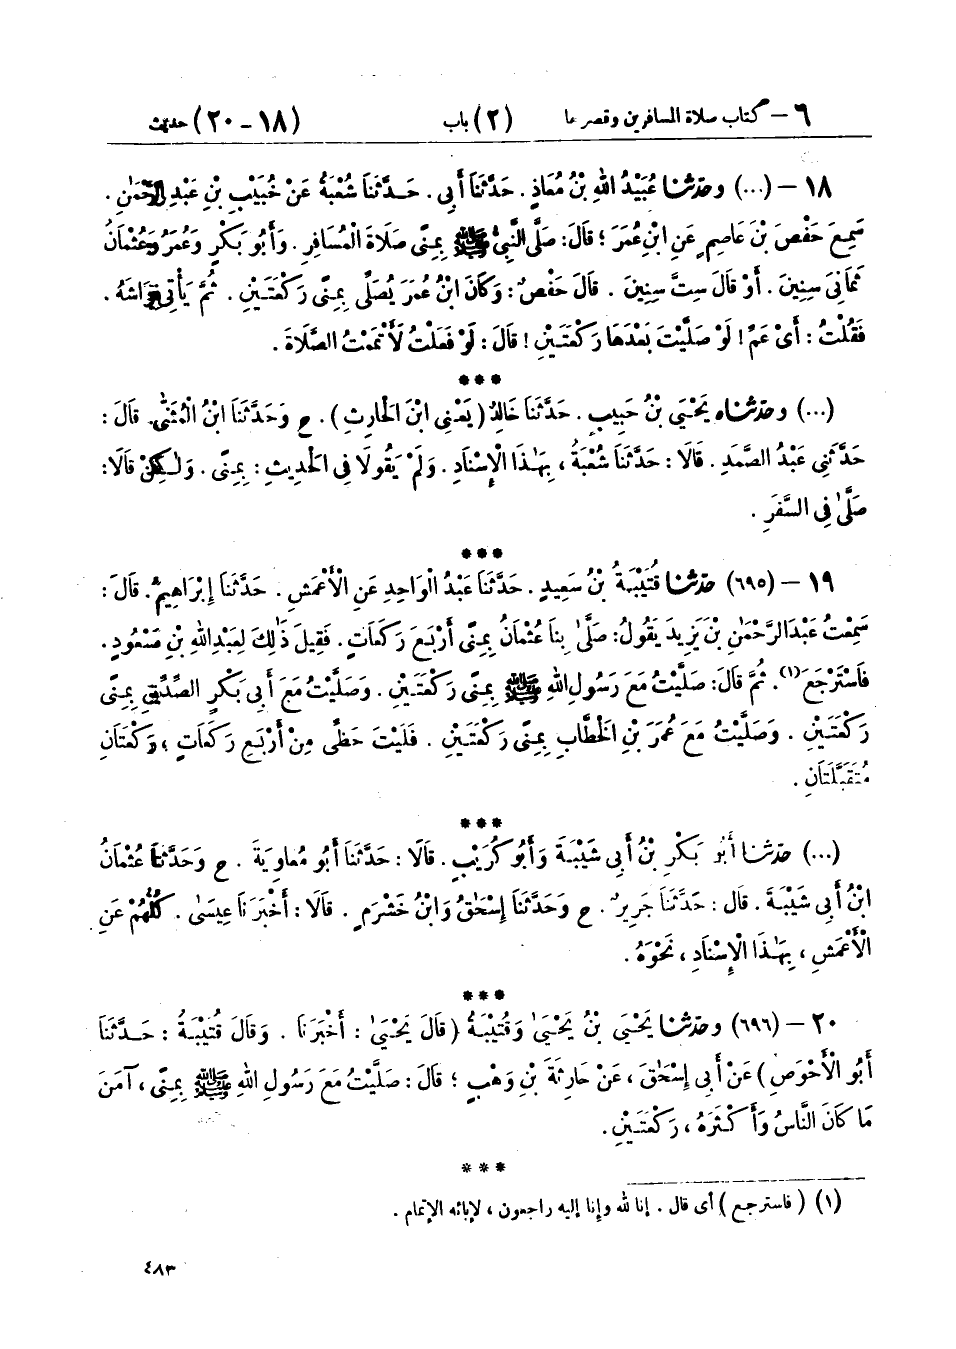 ٦ – كتاب صلاة المسافرين وقصرها (٢) باب (١٨ – ٢٠) حديث
١٨ – (...) وحَدَّثَنَا عُبَيْدُ اللهِ بْنُ مُعَاذٍ . حَدَّثَنَا أَبِي . حَدَّثَنَا شُعْبَةُ عَنْ خُبَيْبِ بْنِ عَبْدِ الرَّحْمٰنِ .
سَمِعَ حَفْصَ بْنَ عَاصِمٍ عَنِ ابْنِ عُمَرَ ؛ قَالَ : صَلَّى النَّبِيُّ ﷺ بِمِنًى صَلَاةَ الْمُسَافِرِ . وَأَبُو بَكْرٍ وَعُمَرُ وَعُثْمَانُ
ثَمَانِيَ سِنِينَ . أَوْ قَالَ سِتَّ سِنِينَ . قَالَ حَفْصٌ : وَكَانَ ابْنُ عُمَرَ يُصَلِّي بِمِنًى رَكْعَتَيْنِ . ثُمَّ يَأْتِي فِرَاشَهُ .
فَقُلْتُ : أَيْ عَمِّ ! لَوْ صَلَّيْتَ بَعْدَهَا رَكْعَتَيْنِ ! قَالَ : لَوْ فَعَلْتُ لَأَتْمَمْتُ الصَّلَاةَ .
***
(...) وحَدَّثَنَاه يَحْيَى بْنُ حَبِيبٍ . حَدَّثَنَا خَالِدٌ ( يَعْنِي ابْنَ الْحَارِثِ ) . ح وَحَدَّثَنَا ابْنُ الْمُثَنَّى . قَالَ :
حَدَّثَنِي عَبْدُ الصَّمَدِ . قَالَا : حَدَّثَنَا شُعْبَةُ ، بِهٰذَا الْإِسْنَادِ . وَلَمْ يَقُولَا فِي الْحَدِيثِ : بِمِنًى . وَلٰكِنْ قَالَا :
صَلَّى فِي السَّفَرِ .
***
١٩ – (٦٩٥) حَدَّثَنَا قُتَيْبَةُ بْنُ سَعِيدٍ . حَدَّثَنَا عَبْدُ الْوَاحِدِ عَنِ الْأَعْمَشِ . حَدَّثَنَا إِبْرَاهِيمُ . قَالَ :
سَمِعْتُ عَبْدَ الرَّحْمٰنِ بْنَ يَزِيدَ يَقُولُ : صَلَّى بِنَا عُثْمَانُ بِمِنًى أَرْبَعَ رَكَعَاتٍ . فَقِيلَ ذٰلِكَ لِعَبْدِ اللهِ بْنِ مَسْعُودٍ .
فَاسْتَرْجَعَ(١) . ثُمَّ قَالَ : صَلَّيْتُ مَعَ رَسُولِ اللهِ ﷺ بِمِنًى رَكْعَتَيْنِ . وَصَلَّيْتُ مَعَ أَبِي بَكْرٍ الصِّدِّيقِ بِمِنًى
رَكْعَتَيْنِ . وَصَلَّيْتُ مَعَ عُمَرَ بْنِ الْخَطَّابِ بِمِنًى رَكْعَتَيْنِ . فَلَيْتَ حَظِّي مِنْ أَرْبَعِ رَكَعَاتٍ ، رَكْعَتَانِ
مُتَقَبَّلَتَانِ .
***
(...) حَدَّثَنَا أَبُو بَكْرِ بْنُ أَبِي شَيْبَةَ وَأَبُو كُرَيْبٍ . قَالَا : حَدَّثَنَا أَبُو مُعَاوِيَةَ . ح وَحَدَّثَنَا عُثْمَانُ
ابْنُ أَبِي شَيْبَةَ . قَالَ : حَدَّثَنَا جَرِيرٌ . ح وَحَدَّثَنَا إِسْحٰقُ وَابْنُ خَشْرَمٍ . قَالَا : أَخْبَرَنَا عِيسَى . كُلُّهُمْ عَنِ
الْأَعْمَشِ ، بِهٰذَا الْإِسْنَادِ ، نَحْوَهُ .
***
٢٠ – (٦٩٦) وحَدَّثَنَا يَحْيَى بْنُ يَحْيَى وَقُتَيْبَةُ ( قَالَ يَحْيَى : أَخْبَرَنَا . وَقَالَ قُتَيْبَةُ : حَدَّثَنَا
أَبُو الْأَحْوَصِ ) عَنْ أَبِي إِسْحٰقَ ، عَنْ حَارِثَةَ بْنِ وَهْبٍ ؛ قَالَ : صَلَّيْتُ مَعَ رَسُولِ اللهِ ﷺ بِمِنًى ، آمَنَ
مَا كَانَ النَّاسُ وَأَكْثَرَهُ ، رَكْعَتَيْنِ .
***
(١) ( فاسترجع ) أى قال . إنا لله وإنا إليه راجعون ، لإبائه الإتمام .
٤٨٣